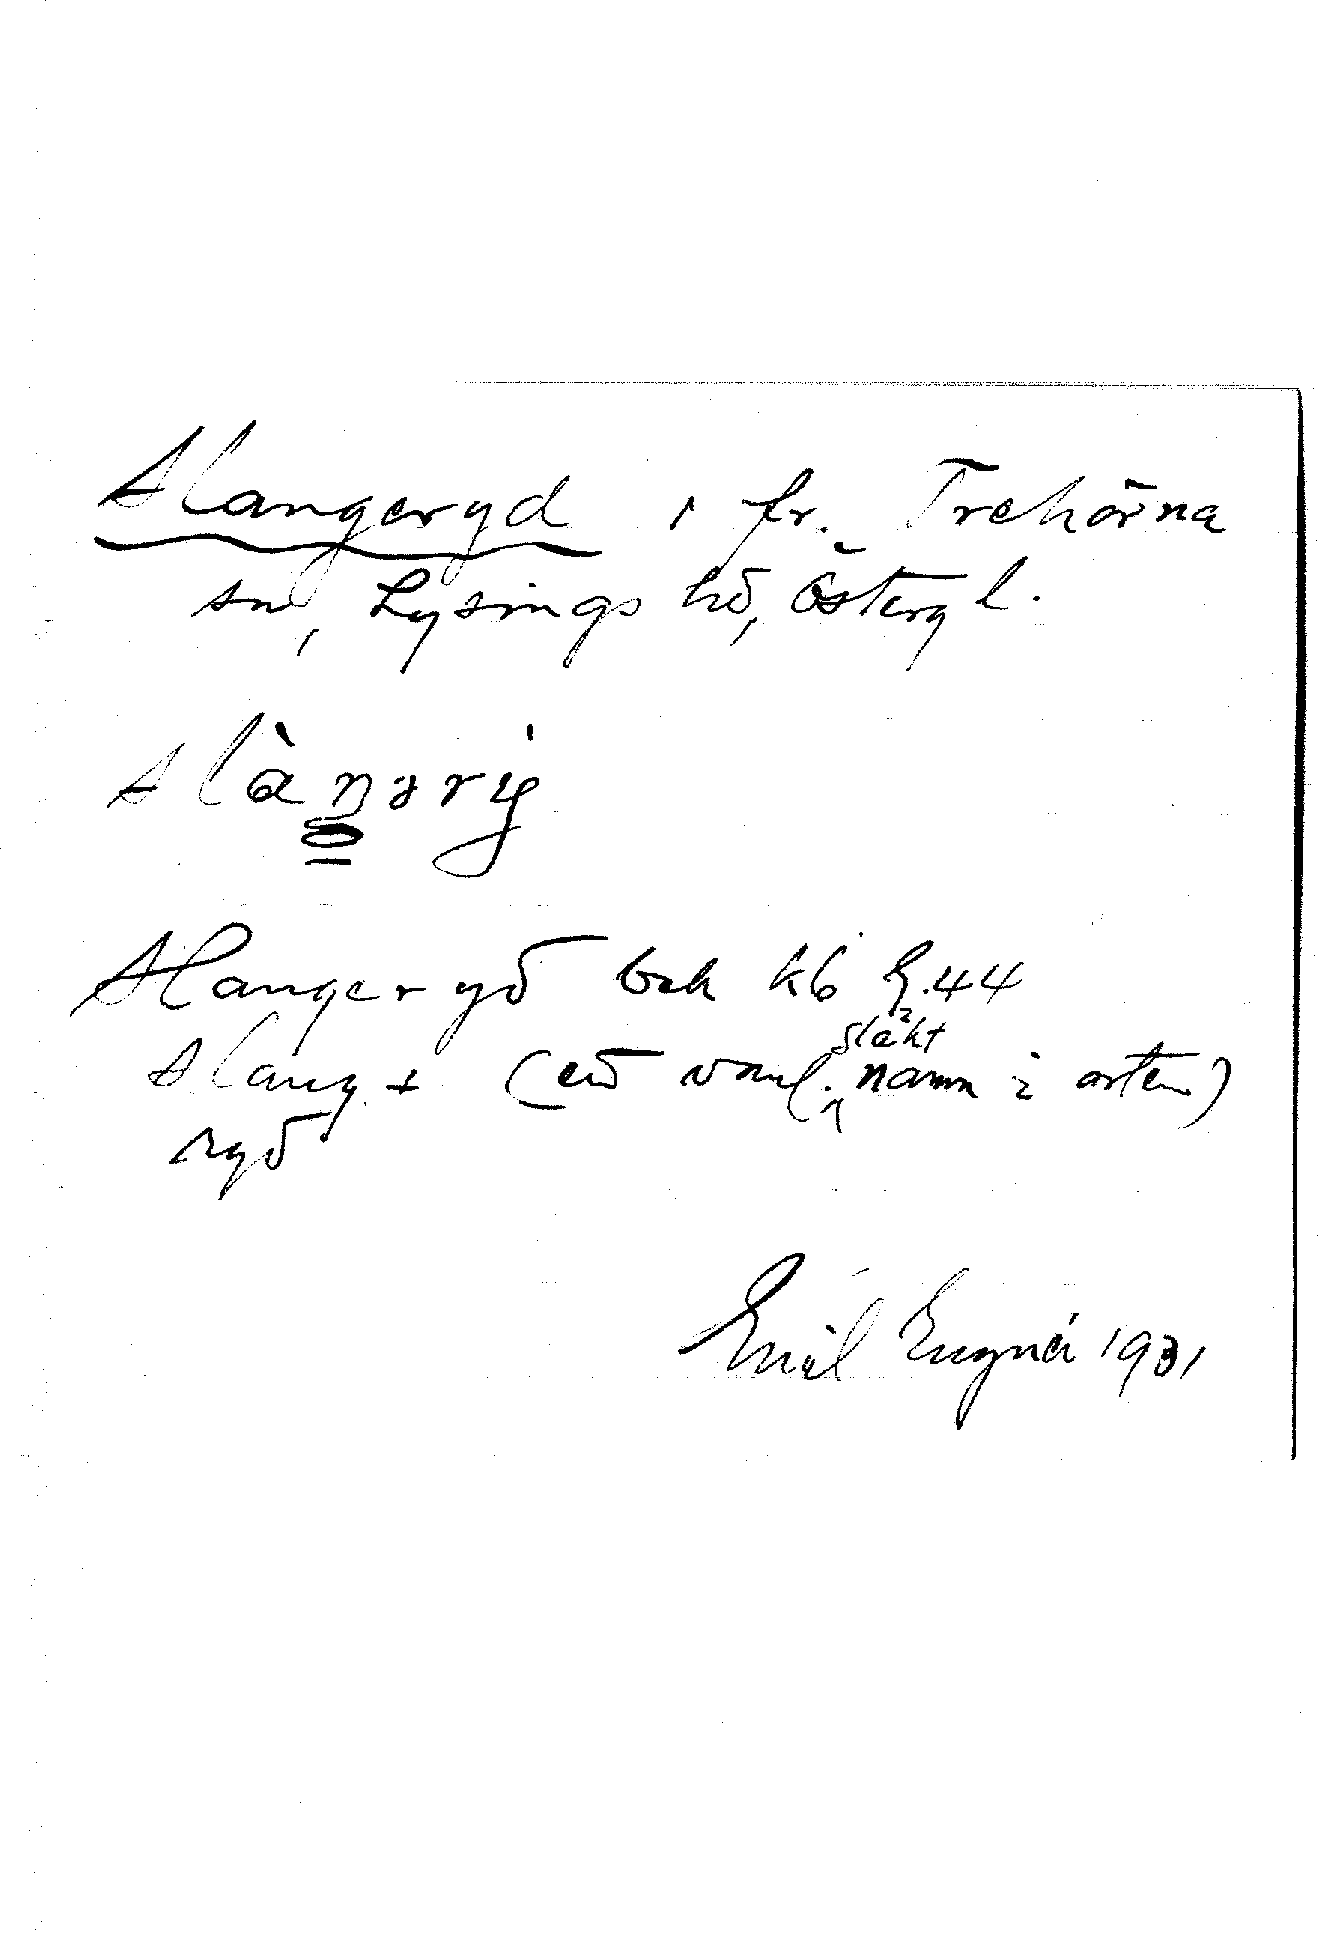 Slangeryd, fr. Trehörna
sn, Lysings hd, Östergl.
slàŋərig
Slangeryd bak kb
Slang + (ett vanl. släktnamn i orten)
ryd
Emil 1931